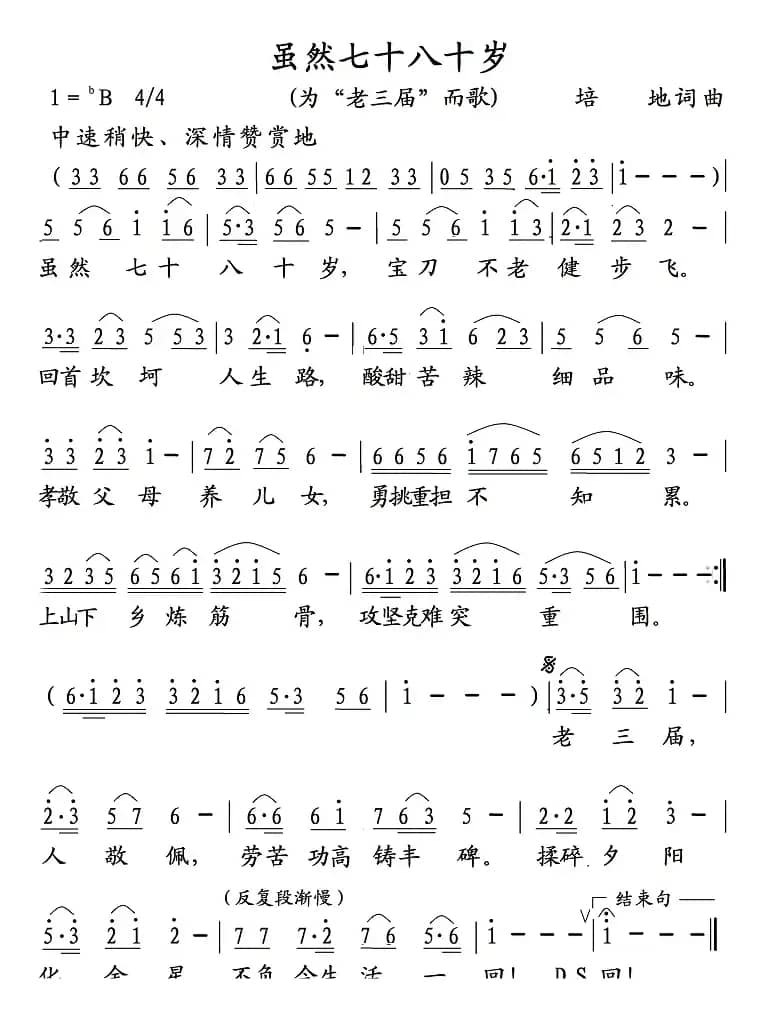 虽然七十八十岁
1=♭B 4/4 (为“老三届”而歌) 培 地词曲
中速稍快、深情赞赏地
( 3 3 6 6 5 6 3 3 | 6 6 5 5 1 2 3 3 | 0 5 3 5 6·1 2 3 | 1 - - - ) |
5 5 6 1 1 6 | 5·3 5 6 5 - | 5 5 6 1 1 3 | 2·1 2 3 2 - |
虽然 七十 八十岁, 宝刀 不老健步飞。
3·3 2 3 5 5 3 | 3 2·1 6 - | 6·5 3 1 6 2 3 | 5 5 6 5 - |
回首坎坷 人生路, 酸甜苦辣 细品味。
3 3 2 3 1 - | 7 2 7 5 6 - | 6 6 5 6 1 7 6 5 6 5 1 2 3 - |
孝敬父母养儿女, 勇挑重担不 知 累。
3 2 3 5 6 5 6 1 3 2 1 5 6 - | 6·1 2 3 3 2 1 6 5·3 5 6 | 1 - - - :||
上山下 乡炼筋 骨, 攻坚克难突 重 围。
( 6·1 2 3 3 2 1 6 5·3 5 6 | 1 - - - ) | 3·5 3 2 1 - |
老 三 届,
2·3 5 7 6 - | 6·6 6 1 7 6 3 5 - | 2·2 1 2 3 - |
人 敬 佩, 劳苦功高铸丰 碑。 揉碎夕阳
(反复段渐慢) 结束句
5·3 2 1 2 - | 7 7 7·2 7 6 5·6 | 1 - - - | 1 - - - ||
化 金 星, 不负今生活 一 回! D.S 回!